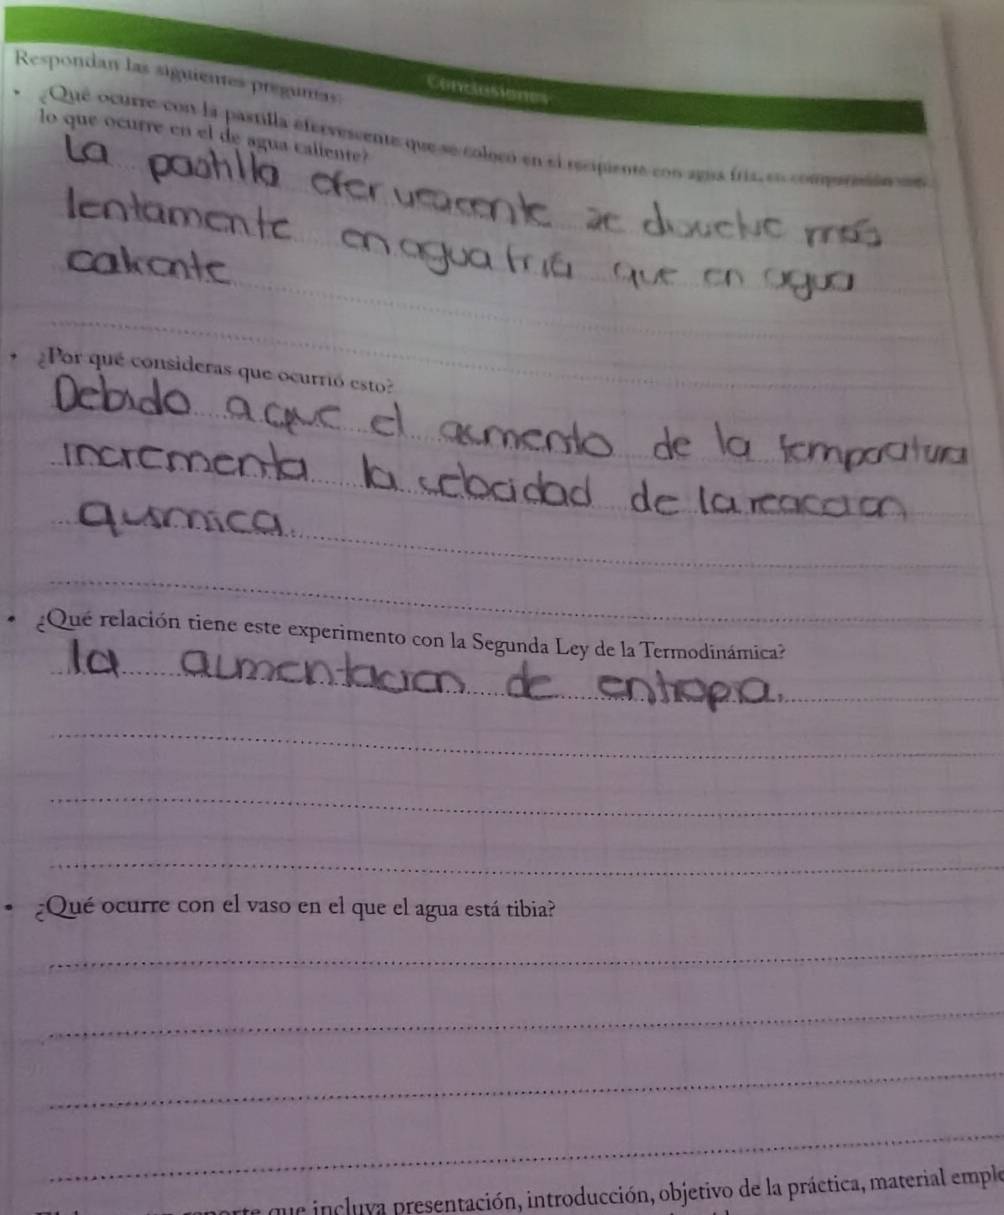 Conclusiones
Respondan las siguientes preguntas:
• ¿Qué ocurre con la pastilla efervescente que se colocó en el recipiente con agua fría, en comparación con
lo que ocurre en el de agua caliente?
La pastilla efervescente se disuelve más
lentamente en agua fría que en agua
caliente
• ¿Por qué consideras que ocurrió esto?
Debido a que el aumento de la temperatura
incrementa la velocidad de la reaccion
quimica.
• ¿Qué relación tiene este experimento con la Segunda Ley de la Termodinámica?
la aumentacion de entropia.
• ¿Qué ocurre con el vaso en el que el agua está tibia?
que incluya presentación, introducción, objetivo de la práctica, material